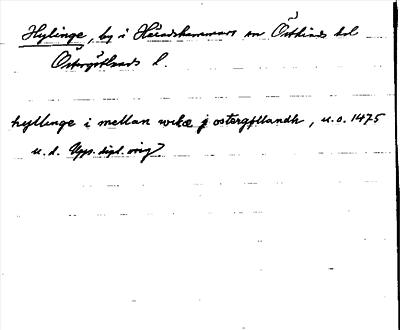 Hylinge, by i Häradshammars sn Östkinds hd
Östergötlands l.
hyllinge i mellan wikæ j ostergøtlandh, u.o. 1475
u. d. Upps. dipl. orig